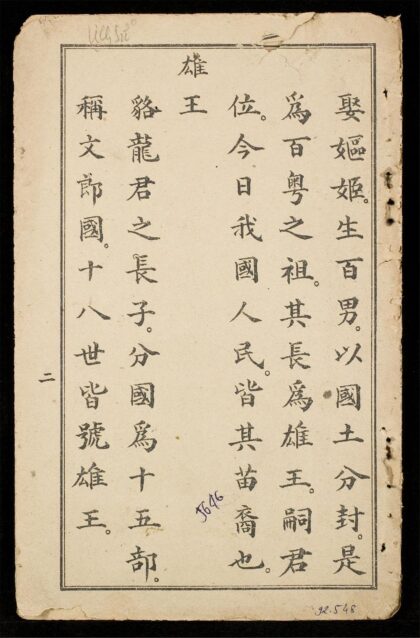 娶嫗姬。生百男。以國土分封。是
爲百粤之祖。其長爲雄王。嗣君
位。今日我國人民。皆其苗裔也。
雄王
貉龍君之長子。分國爲十五部。
稱文郎國。十八世皆號雄王。
二
5646
92.548